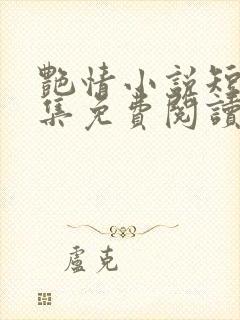 艷情小說短
集免費閱讀
盧克